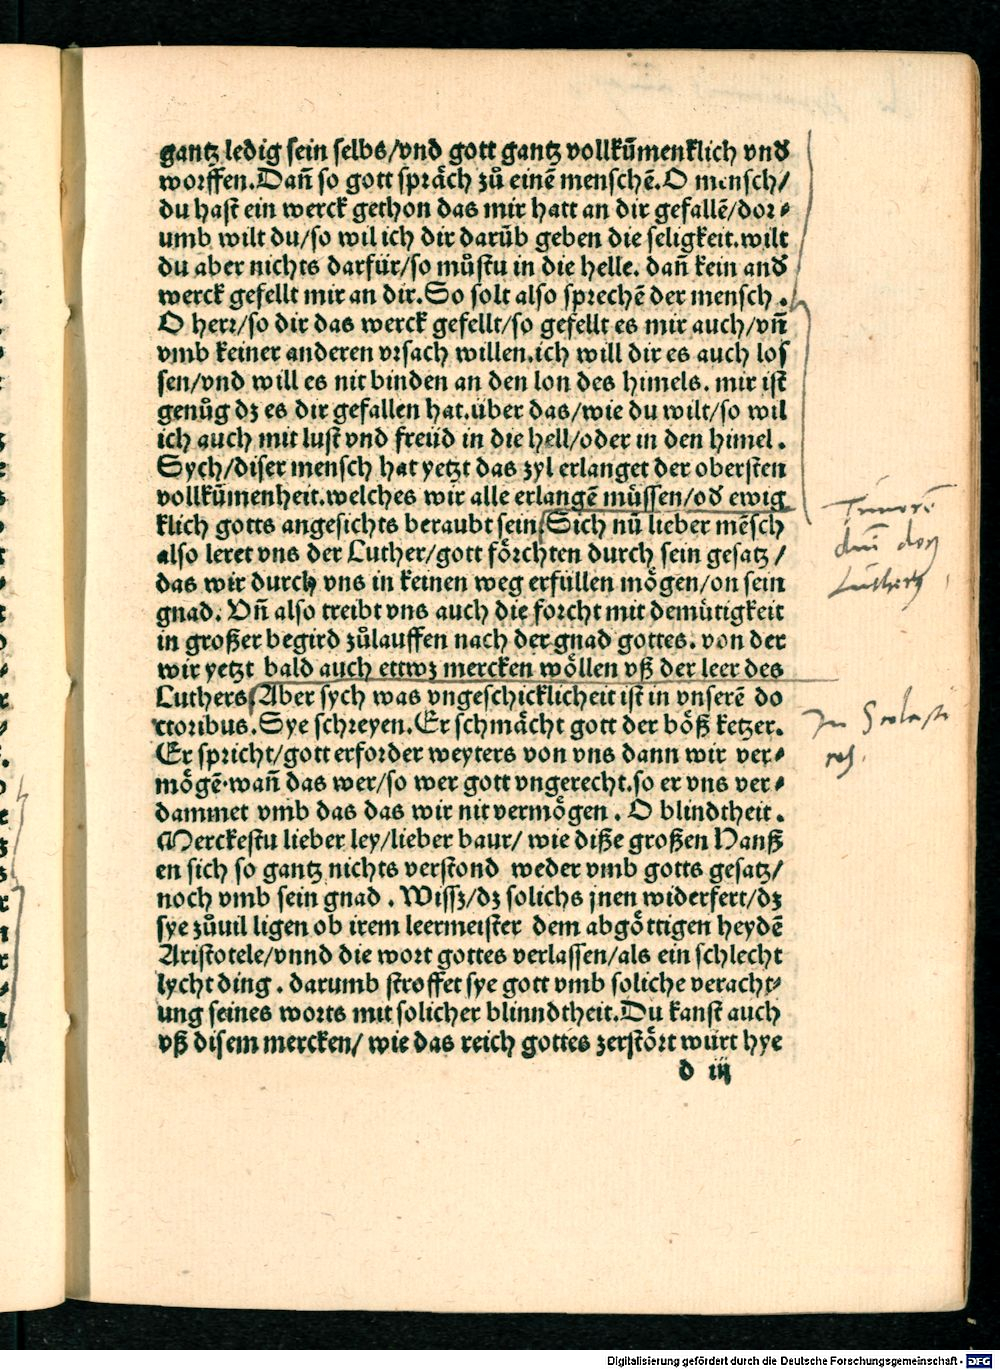 gantz ledig sein selbs/vnd gott gantz vollkūmenklich vnd
worffen. Dañ so gott spräch zů einē menschē. O mensch/
du hast ein werck gethon das mir hatt an dir gefallē/dor⸗
umb wilt du/so wil ich dir darüb geben die seligkeit. wilt
du aber nichts darfür/so můstu in die helle. dañ kein and
werck gefellt mir an dir. So solt also sprechē der mensch.
O herr/so dir das werck gefellt/so gefellt es mir auch/vñ
vmb keiner anderen vrsach willen. ich will dir es auch los
sen/vnd will es nit binden an den lon des himels. mir ist
genůg dz es dir gefallen hat. über das/wie du wilt/so wil
ich auch mit lust vnd freüd in die hell/oder in den himel.
Sych/diser mensch hat yetzt das zyl erlanget der obersten
vollkūmenheit. welches wir alle erlangē müssen/od ewig
klich gotts angesichts beraubt sein. Sich nū lieber mēsch
also leret vns der Luther/gott förchten durch sein gesatz/
das wir durch vns in keinen weg erfüllen mögen/on sein
gnad. Vñ also treibt vns auch die forcht mit demütigkeit
in großer begird zůlauffen nach der gnad gottes. von der
wir yetzt bald auch ettwz mercken wöllen vß der leer des
Luthers. Aber sych was vngeschicklicheit ist in vnserē do
ctoribus. Sye schreyen. Er schmächt gott der böß ketzer.
Er spricht/gott erforder weyters von vns dann wir ver⸗
mögē. wañ das wer/so wer gott vngerecht. so er vns ver⸗
dammet vmb das das wir nit vermögen. O blindtheit.
Merckestu lieber ley/lieber baur/ wie diße großen Hanß
en sich so gantz nichts verstond weder vmb gotts gesatz/
noch vmb sein gnad. Wissz/dz solichs jnen widerfert/dz
sye zůuil ligen ob irem leermeister dem abgöttigen heydē
Aristotele/vnnd die wort gottes verlassen/als ein schlecht
lycht ding. darumb stroffet sye gott vmb soliche veracht⸗
ung seines worts mit solicher blinndtheit. Du kanst auch
vß disem mercken/ wie das reich gottes zerstört würt hye
d iij
Digitalisierung gefördert durch die Deutsche Forschungsgemeinschaft - DFG